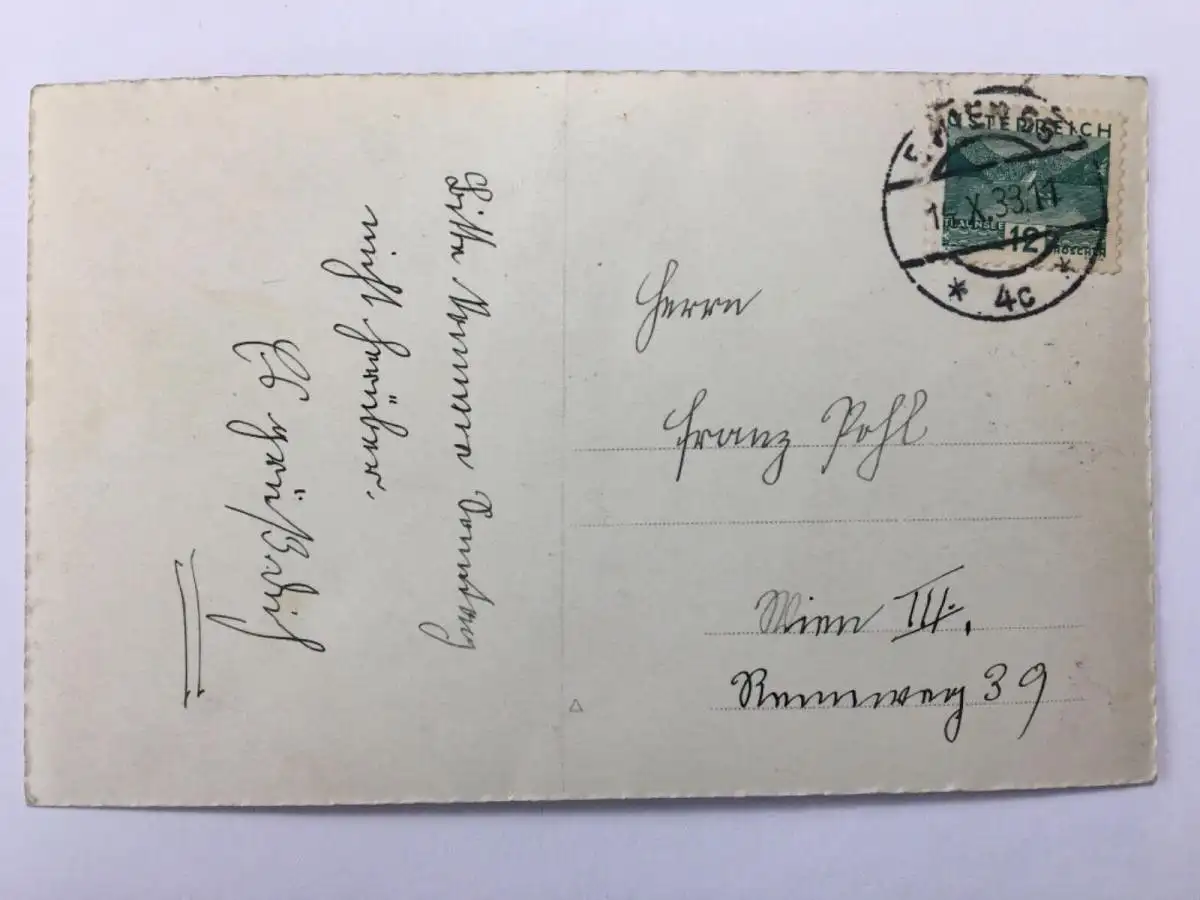 Bitte Sonntag
nicht herüber.
Es grüßt Dich
Herrn
Franz Pohl
Wien III.
Rennweg 39
ÖSTERREICH
TRAUNSEE 12 GROSCHEN
X.33.11
* 4c *